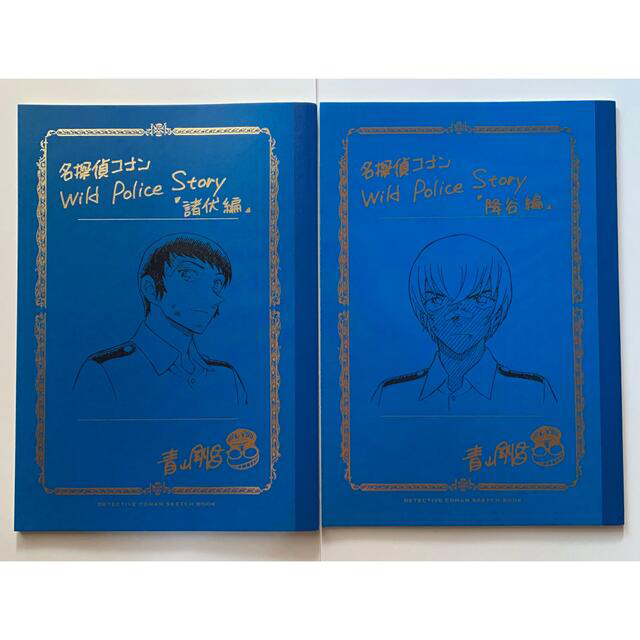 名探偵コナン
Wild Police Story
『諸伏編』
青山剛昌
DETECTIVE CONAN SKETCH BOOK
名探偵コナン
Wild Police Story
『降谷編』
青山剛昌
DETECTIVE CONAN SKETCH BOOK